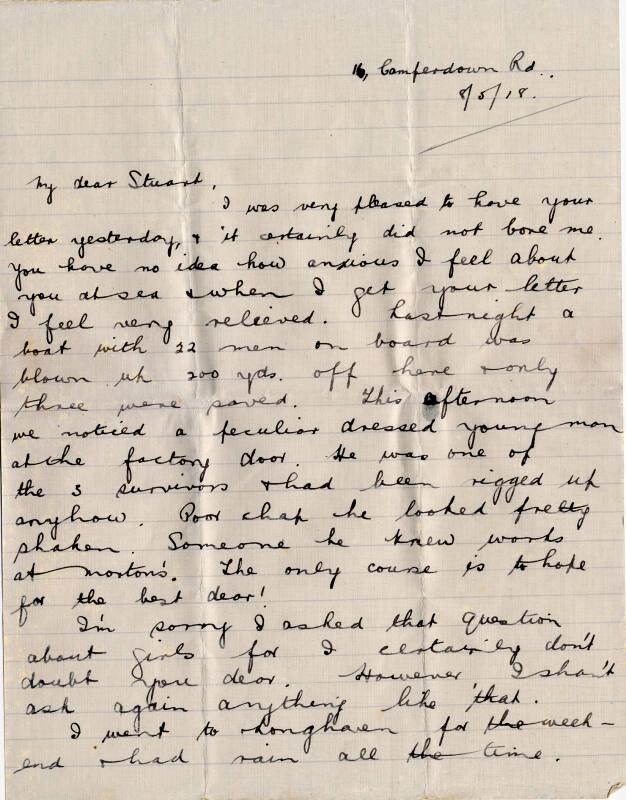 16, Camperdown Rd..
8/5/18.
My dear Stuart,
I was very pleased to have your
letter yesterday, & it certainly did not bore me.
You have no idea how anxious I feel about
you at sea & when I get your letter
I feel very relieved. Last night a
boat with 22 men on board was
blown up 200 yds. off here & only
three were saved. This afternoon
we noticed a peculiar dressed young man
at the factory door. He was one of
the 3 survivors & had been rigged up
anyhow. Poor chap he looked pretty
shaken. Someone he knew works
at Morton's. The only course is to hope
for the best dear!
I'm sorry I asked that question
about girls for I certainly don't
doubt you dear. However I shan't
ask again anything like that.
I went to for the week-
end & had rain all the time.